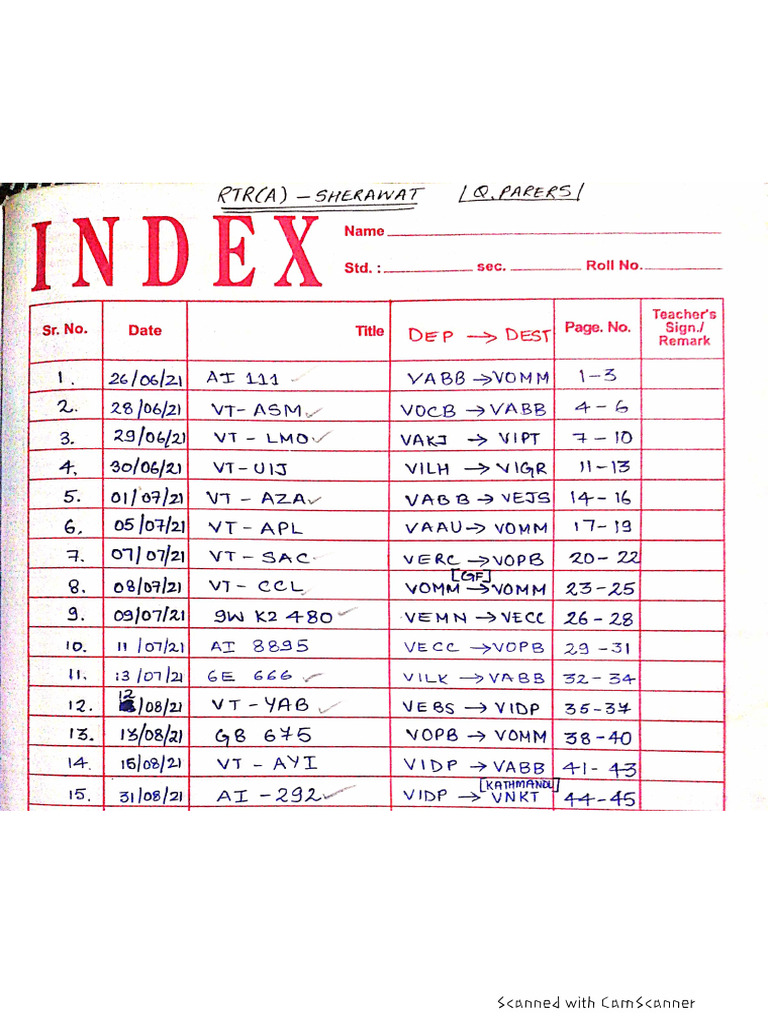 RTR(A) - SHERAWAT /Q. PAPERS/
INDEX
Name
Std. : sec. Roll No.
Sr. No. Date Title DEP → DEST Page. No. Teacher's Sign./ Remark
1. 26/06/21 AI 111 ✓ VABB → VOMM 1-3
2. 28/06/21 VT-ASM ✓ VOCB → VABB 4-6
3. 29/06/21 VT-LMO ✓ VAKJ → VIPT 7-10
4. 30/06/21 VT-UIJ VILH → VIGR 11-13
5. 01/07/21 VT-AZA ✓ VABB → VEJS 14-16
6. 05/07/21 VT-APL VAAU → VOMM 17-19
7. 07/07/21 VT-SAC ✓ VERC → VOPB 20-22
8. 08/07/21 VT-CCL ✓ VOMM [GF] → VOMM 23-25
9. 09/07/21 9W K2 480 ✓ VEMN → VECC 26-28
10. 11/07/21 AI 8895 VECC → VOPB 29-31
11. 13/07/21 6E 666 ✓ VILK → VABB 32-34
12. 12/08/21 VT-YAB ✓ VEBS → VIDP 35-37
13. 13/08/21 G8 675 VOPB → VOMM 38-40
14. 15/08/21 VT-AYI VIDP → VABB 41-43
15. 31/08/21 AI-292 ✓ VIDP → [KATHMANDU] VNKT 44-45
Scanned with CamScanner